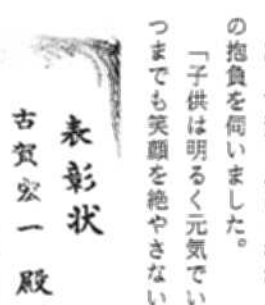 の抱負を伺いました。
「子供は明るく元気でい
つまでも笑顔を絶やさない
表彰状
古賀宏一殿